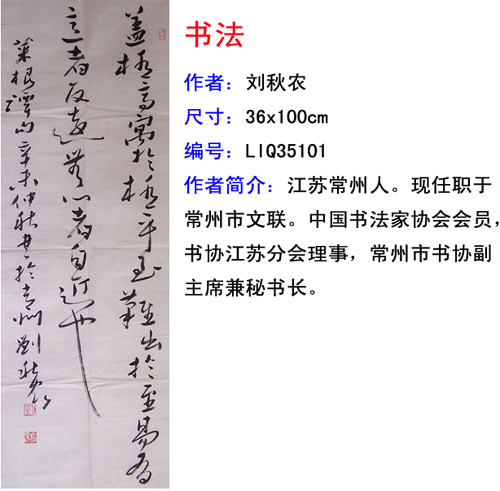 蓋極高寓於極平至難出於至易有
意者反遠無心者自近也
菜根譚句辛未仲秋書於常州劉秋農
书法
作者：刘秋农
尺寸：36x100cm
编号：LIQ35101
作者简介：江苏常州人。现任职于
常州市文联。中国书法家协会会员，
书协江苏分会理事，常州市书协副
主席兼秘书长。